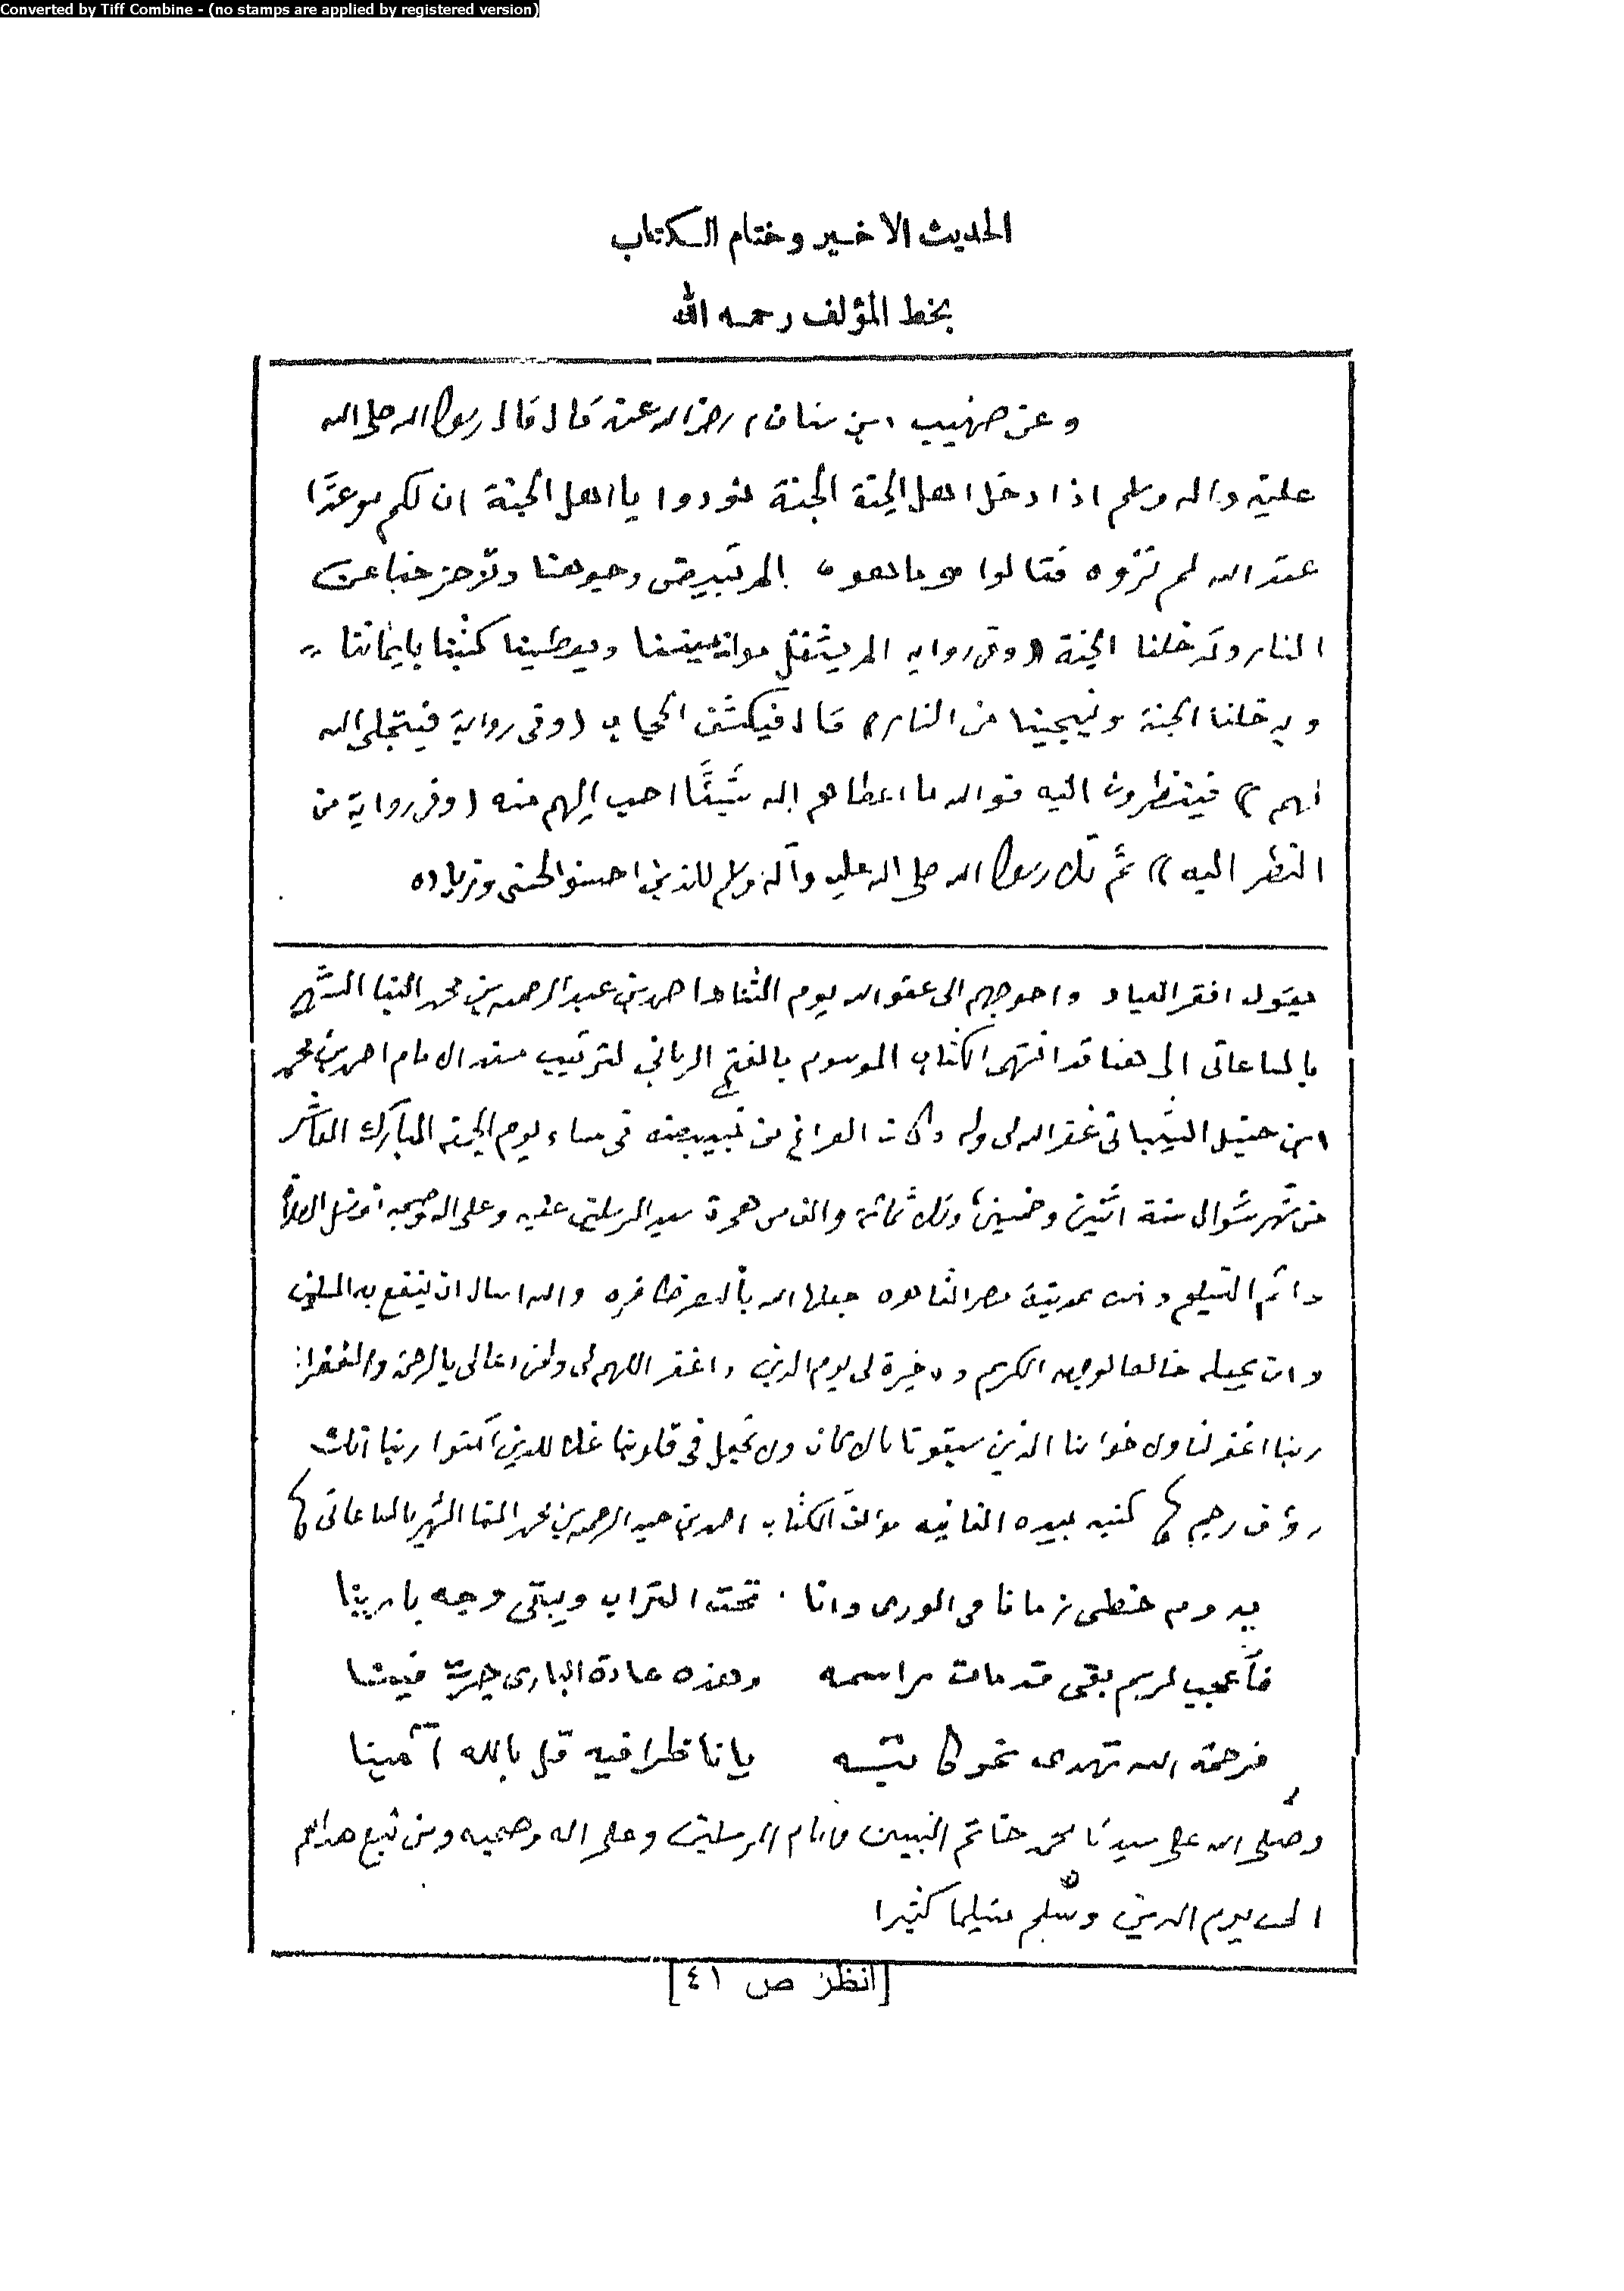 Converted by Tiff Combine - (no stamps are applied by registered version)
الحديث الاخير وختام الكتاب
بخط المؤلف رحمه الله
وعن صهيب ابن سنان رضى الله عنه قال قال رسول الله صلى الله
عليه واله وسلم اذا دخل اهل الجنة الجنة نودوا يا اهل الجنة ان لكم موعدًا
عند الله لم تروه فقالوا وما هو الم تبيض وجوهنا وتزحزحنا عن
النار وتدخلنا الجنة (وفى روايه الم يثقل موازيننا ويعطينا كتبنا بايماننا
ويدخلنا الجنة وينجينا من النار) قال فيكشف الحجاب (وفى رواية فيتجلى الله
لهم) فينظرون اليه فوالله ما اعطاهم الله شيئًا احب اليهم منه (وفى رواية من
النظر اليه) ثم تلا رسول الله صلى الله عليه وآله وسلم للذين احسنوا الحسنى وزياده
يقول افقر العباد واحوجهم الى عفو الله يوم التناد احمد بن عبد الرحمن بن محمد البنا الشهير
بالساعاتى الى هنا قد انتهى الكتاب الموسوم بالفتح الربانى لترتيب مسند الامام احمد بن محمد
ابن حنبل الشيبانى غفر الله لى وله وكان الفراغ من تبييضه فى مساء يوم الجمعه المبارك العاشر
من شهر شوال سنة اثنين وخمسين وثلاثمائة والف من هجرة سيد المرسلين عليه وعلى اله وصحبه افضل الصلاة
واتم التسليم وذلك بمدينة مصر القاهره جعلها الله بالعز ظافره والله اسال ان ينفع به المسلمين
وان يجعله خالصا لوجهه الكريم وذخيرة لى يوم الدين واغفر اللهم لى ولمن دعا لى بالرحمة والمغفرة
ربنا اغفر لنا ولاخواننا الذين سبقونا بالايمان ولا تجعل فى قلوبنا غلا للذين آمنوا ربنا انك
رؤف رحيم كتبه بيده الفانيه مؤلف الكتاب احمد بن عبد الرحمن بن محمد البنا الشهير بالساعاتى
يدوم خطى زمانا فى الورى وانا تحت التراب ويبقى وجه بارينا
فاعجب لرسم بقى قد مات راسمه وهذه عادة البارى جرت فينا
فرحمة الله تهدى نحو كاتبه يا ناظرا فيه قل بالله آمينا
وصلى الله على سيدنا محمد خاتم النبيين وامام المرسلين وعلى اله وصحبه ومن تبع هداهم
الى يوم الدين وسلم تسليما كثيرا
[انظر ص ٤١]